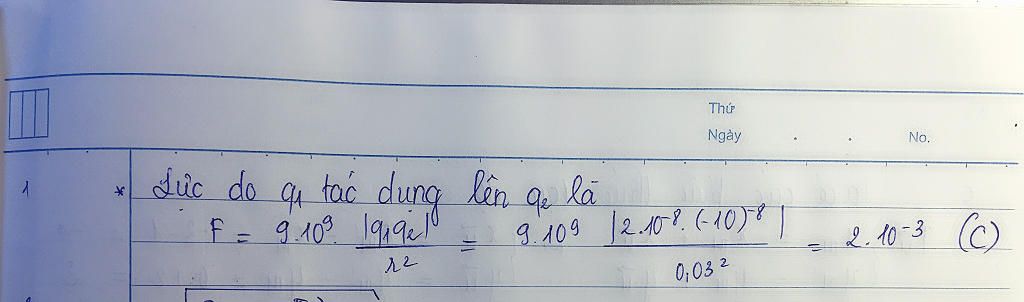 Thứ
Ngày . . No.
1 * Lực do q₁ tác dụng lên q₂ là
F = 9.10⁹. |q₁q₂| / r² = 9.10⁹ |2.10⁻⁸.(-10)⁻⁸| / 0,03² = 2.10⁻³ (C)